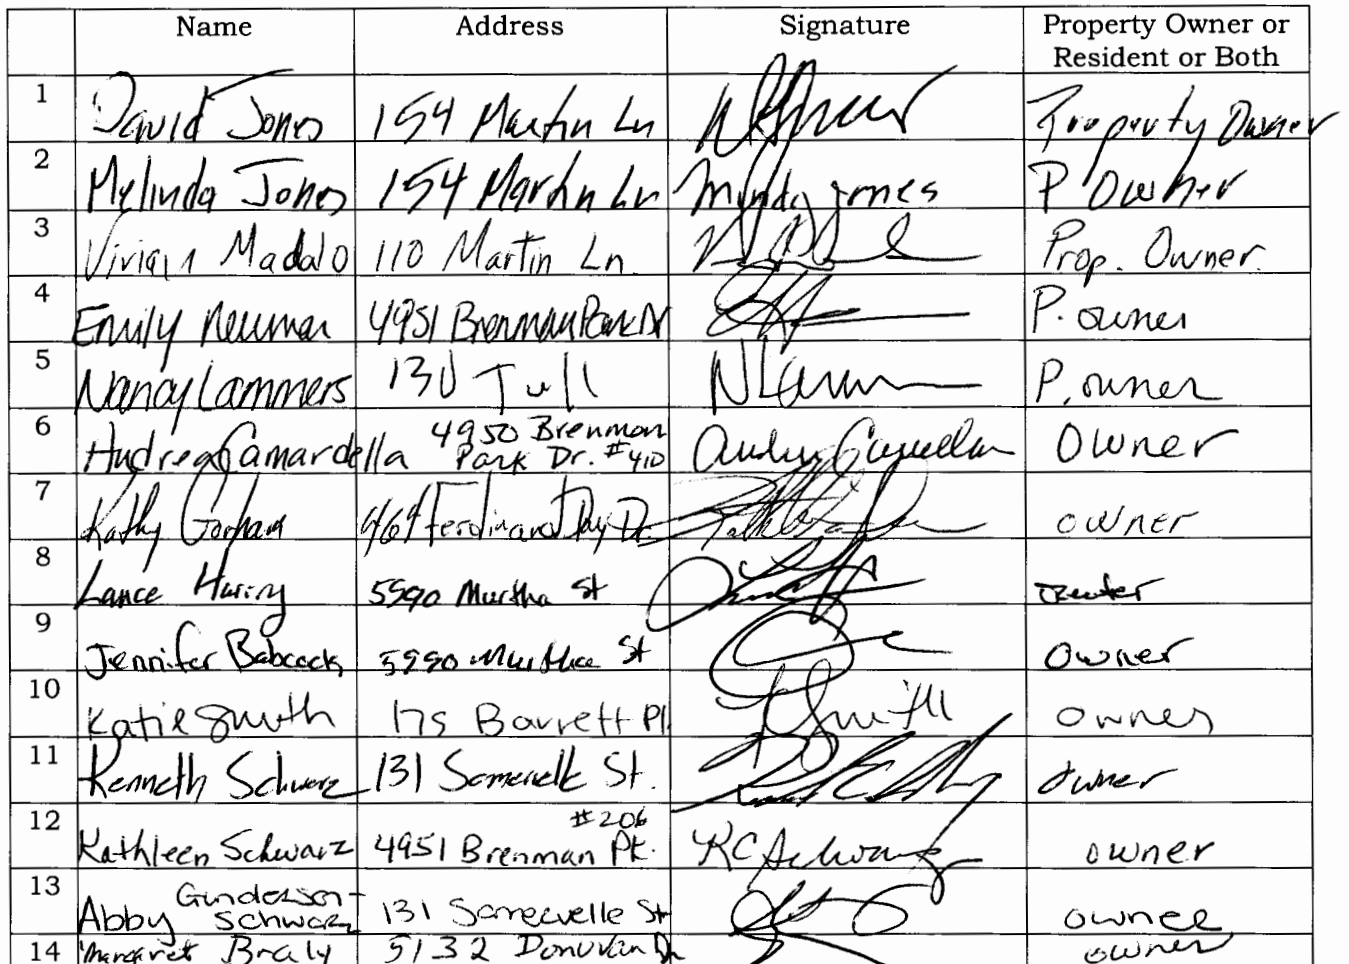 Name Address Signature Property Owner or
Resident or Both
1 David Jones 154 Martin Ln Property Owner
2 Melinda Jones 154 Martin Ln Mindy Jones P Owner
3 Vivian Madalo 110 Martin Ln. Prop. Owner.
4 Emily Neuman 4951 Brenman Park Dr P. owner
5 Nancy Lammers 130 Tull P. owner
6 Audrea Camardella 4950 Brenman
Park Dr. #410 Owner
7 Kathy Gorham Ferdinand Day Dr owner
8 Lance 5590 Murtha St
9 Jennifer Babcock 5990 St Owner
10 Katie Smith 175 Barrett Pl Smith owner
11 Kenneth Schwarz 131 Somervelle St. Owner
#206
12 Kathleen Schwarz 4951 Brenman Pk. KC Schwarz owner
Gunderson-
13 Abby Schwarz 131 Somervelle St owner
14 Margaret Braly 5132 Donovan Dr owner